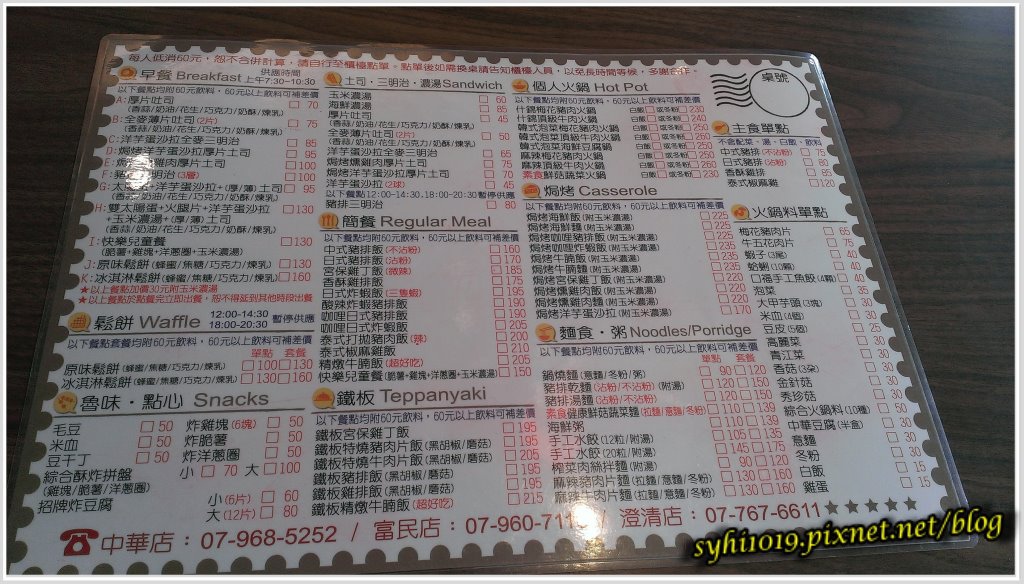 每人低消60元，恕不合併計算，請自行至櫃檯點單。點單後如需換桌請告知櫃檯人員，以免長時間等候，多謝合作。
早餐 Breakfast 供應時間 上午7:30~10:30
以下餐點均附60元飲料，60元以上飲料可補差價
A:厚片吐司 □ 70
(香蒜/奶油/花生/巧克力/奶酥/煉乳)
B:全麥薄片吐司(2片) □ 75
(香蒜/奶油/花生/巧克力/奶酥/煉乳)
C:洋芋蛋沙拉全麥三明治 □ 85
D:焗烤洋芋蛋沙拉厚片吐司 □ 95
E:焗烤燻雞肉厚片吐司 □ 100
F:豬排三明治(3層) □ 100
G:太陽蛋+洋芋蛋沙拉+(厚/薄)土司 □ 95
(香蒜/奶油/花生/巧克力/奶酥/煉乳)
H:雙太陽蛋+火腿片+洋芋蛋沙拉 □ 130
+玉米濃湯+(厚/薄)土司
(香蒜/奶油/花生/巧克力/奶酥/煉乳)
I:快樂兒童餐 □ 130
(脆薯/雞塊/洋蔥圈+玉米濃湯)
J:原味鬆餅(蜂蜜/焦糖/巧克力/煉乳) □ 130
K:冰淇淋鬆餅(蜂蜜/焦糖/巧克力/煉乳) □ 160
★以上餐點加價30元附玉米濃湯
★以上餐點於點餐完立即出餐，恕不得延到其他時段出餐
鬆餅 Waffle 12:00-14:30 18:00-20:30 暫停供應
以下套餐均附60元飲料，60元以上飲料可補差價
單點 套餐
原味鬆餅(蜂蜜/焦糖/巧克力/煉乳) □ 100 □ 130
冰淇淋鬆餅(蜂蜜/焦糖/巧克力/煉乳) □ 130 □ 160
魯味・點心 Snacks
毛豆 □ 50 炸雞塊(6塊) □ 50
米血 □ 50 炸脆薯 □ 50
豆干丁 □ 50 炸洋蔥圈 □ 50
綜合酥炸拼盤 小 □ 70 大 □ 100
(雞塊/脆薯/洋蔥圈)
招牌炸豆腐 小(6片) □ 60
大(12片) □ 80
土司・三明治・濃湯 Sandwich
玉米濃湯 □ 60
海鮮濃湯 □ 85
厚片吐司 □ 45
(香蒜/奶油/花生/巧克力/奶酥/煉乳)
全麥薄片吐司(2片) □ 50
(香蒜/奶油/花生/巧克力/奶酥/煉乳)
洋芋蛋沙拉全麥三明治 □ 65
焗烤洋芋蛋沙拉厚片吐司 □ 75
焗烤燻雞肉厚片吐司 □ 75
洋芋沙拉(2球) □ 45
以下餐點12:00-14:30.18:00-20:30暫停供應
豬排三明治 □ 80
簡餐 Regular Meal
以下餐點均附60元飲料，60元以上飲料可補差價
中式豬排飯(不沾粉) □ 160
日式豬排飯(沾粉) □ 170
宮保雞丁飯(微辣) □ 185
香酥雞排飯 □ 175
日式炸蝦飯(三隻蝦) □ 190
酸辣炸蝦豬排飯 □ 195
咖哩日式豬排飯 □ 190
咖哩日式炸蝦飯 □ 205
泰式打拋豬肉飯(辣) □ 200
泰式椒麻雞飯 □ 210
精燉牛腩飯(超好吃) □ 205
快樂兒童餐(脆薯+雞塊+洋蔥圈+玉米濃湯)
鐵板 Teppanyaki
以下餐點均附60元飲料，60元以上飲料可補差價
鐵板宮保雞丁飯 □ 195
鐵板特燒豬肉片飯(黑胡椒/蘑菇) □ 195
鐵板特燒牛肉片飯(黑胡椒/蘑菇) □ 205
鐵板豬排飯(黑胡椒/蘑菇) □ 195
鐵板雞排飯(黑胡椒/蘑菇) □ 195
鐵板精燉牛腩飯(超好吃) □ 215
個人火鍋 Hot Pot
以下餐點均附60元飲料，60元以上飲料可補差價
什錦梅花豬肉火鍋 白飯□ 或冬粉□ 230
什錦頂級牛肉火鍋 白飯□ 或冬粉□ 240
韓式泡菜梅花豬肉火鍋 白飯□ 或冬粉□ 250
韓式泡菜頂級牛肉火鍋 白飯□ 或冬粉□ 260
韓式泡菜海鮮豆腐鍋 白飯□ 或冬粉□
麻辣梅花豬肉火鍋 白飯□ 或冬粉□
麻辣頂級牛肉火鍋 白飯□ 或冬粉□ 260
素食鮮菇蔬菜火鍋 白飯□ 或冬粉□ 230
焗烤 Casserole
以下餐點均附60元飲料，60元以上飲料可補差價
焗烤海鮮飯(附玉米濃湯) □ 225
焗烤咖哩豬排飯(附玉米濃湯) □ 225
焗烤咖哩炸蝦飯(附玉米濃湯) □ 225
焗烤牛腩飯(附玉米濃湯) □ 220
焗烤牛腩麵(附玉米濃湯) □ 220
焗烤宮保雞丁飯(附玉米濃湯) □ 220
焗烤燻雞肉飯(附玉米濃湯) □ 220
焗烤燻雞肉麵(附玉米濃湯) □ 220
焗烤洋芋蛋沙拉(附玉米濃湯) □ 170
麵食・粥 Noodles/Porridge
以下套餐均附60元飲料，60元以上飲料可補差價
單點 套餐
鍋燒麵(意麵/冬粉/粥) □ 90 □ 120
豬排乾麵(沾粉/不沾粉)(附湯) □ 120 □ 150
豬排湯麵(沾粉/不沾粉) □ 120 □ 150
素食健康鮮菇蔬菜麵(拉麵/意麵/冬粉) □ 110 □ 139
海鮮粥 □ 110 □ 139
手工水餃(12粒/附湯) □ 105 □ 135
手工水餃(20粒/附湯) □ 145 □ 175
榨菜肉絲拌麵(附湯) □ 90 □ 120
麻辣豬肉片麵(拉麵/意麵/冬粉) □ 130 □ 160
麻辣牛肉片麵(拉麵/意麵/冬粉) □ 130 □ 160
桌號
主食單點
不含配菜・湯・白飯・飲料
中式豬排(不沾粉) □ 75
日式豬排(沾粉) □ 80
香酥雞排 □ 85
泰式椒麻雞 □ 120
火鍋料單點
梅花豬肉片 □ 65
牛五花肉片 □ 75
蝦子(3尾) □ 40
蛤蜊(10顆) □ 40
口福手工魚餃(4顆) □ 40
泡菜 □ 35
大甲芋頭(3塊) □ 30
米血(4個) □ 30
豆皮(5個) □ 25
高麗菜 □ 30
青江菜 □ 30
香菇(3朵) □ 30
金針菇 □ 30
秀珍菇 □ 30
綜合火鍋料(10種) □ 50
中華豆腐(半盒) □ 30
意麵 □ 30
冬粉 □ 30
白飯 □ 15
雞蛋 □ 15
☎中華店：07-968-5252 / 富民店：07-960-711 / 澄清店：07-767-6611 ★★★★★
syhi1019.pixnet.net/blog